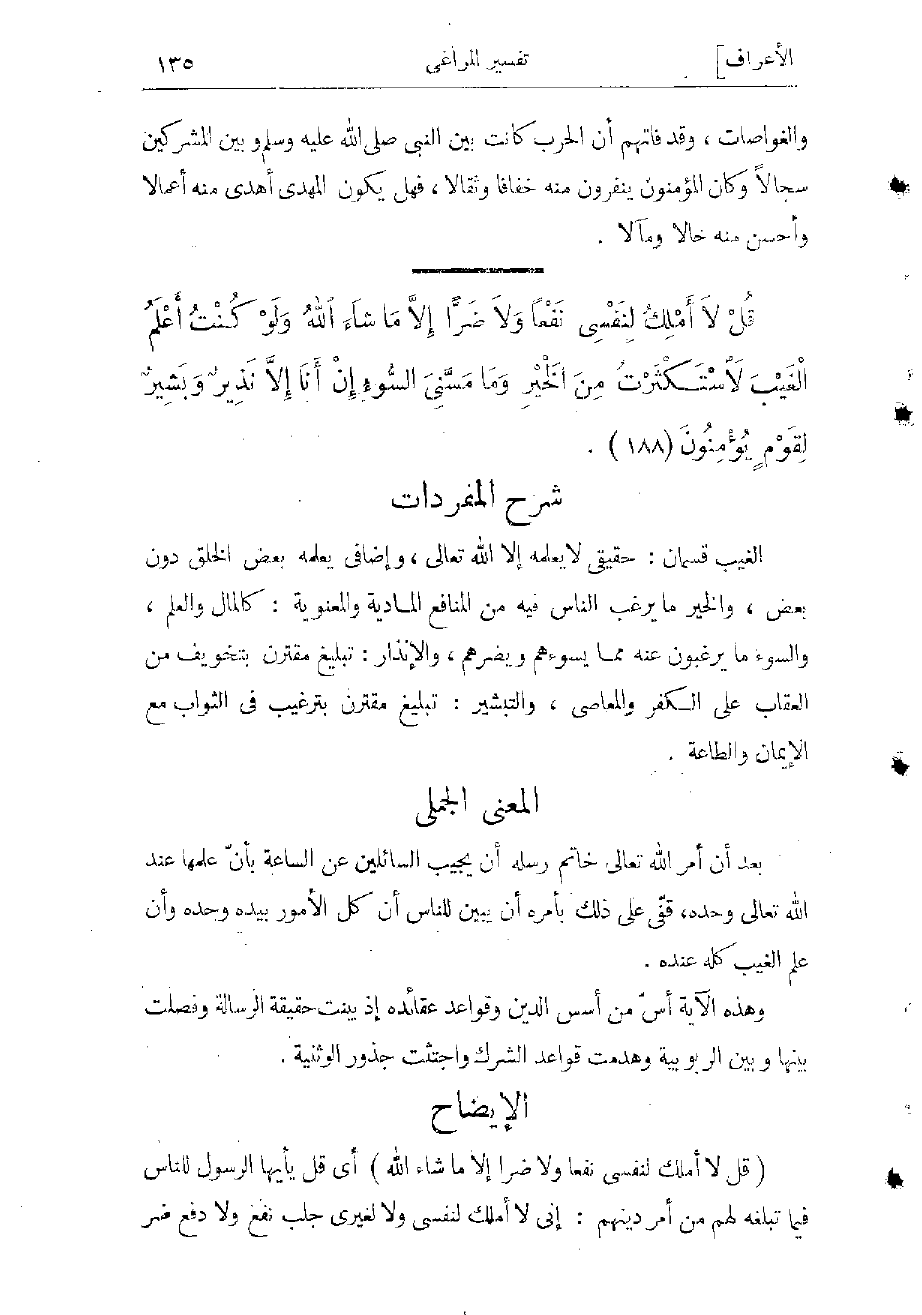 الأعراف] تفسير المراغى ١٣٥
والغواصات ، وقد فاتهم أن الحرب كانت بين النبى صلى الله عليه وسلم وبين المشركين
سجالاً وكان المؤمنون ينفرون منه خفافا وثقالا ، فهل يكون المهدى أهدى منه أعمالا
وأحسن منه حالا ومآلا .
قُلْ لاَ أَمْلِكُ لِنَفْسِى نَفْعاً وَلاَ ضَرًّا إِلاَّ مَا شَاءَ اللهُ وَلَوْ كُنْتُ أَعْلَمُ
الْغَيْبَ لَاسْتَكْثَرْتُ مِنَ الْخَيْرِ وَمَا مَسَّنِىَ السُّوءِ إِنْ أَنَا إِلاَّ نَذِيرٌ وَبَشِيرٌ
لِقَوْمٍ يُؤْمِنُونَ (١٨٨) .
شرح المفردات
الغيب قسمان : حقيقى لا يعلمه إلا الله تعالى ، وإضافى يعلمه بعض الخلق دون
بعض ، والخير ما يرغب الناس فيه من المنافع المادية والمعنوية : كالمال والعلم ،
والسوء ما يرغبون عنه مما يسوءهم ويضرهم ، والإنذار : تبليغ مقترن بتخويف من
العقاب على الكفر والمعاصى ، والتبشير : تبليغ مقترن بترغيب فى الثواب مع
الإيمان والطاعة .
المعنى الجملى
بعد أن أمر الله تعالى خاتم رسله أن يجيب السائلين عن الساعة بأنّ علمها عند
الله تعالى وحده، قفّى على ذلك بأمره أن يبين للناس أن كل الأمور بيده وحده وأن
علم الغيب كله عنده .
وهذه الآية أسّ من أسس الدين وقواعد عقائده إذ بينت حقيقة الرسالة وفصلت
بينها وبين الربوبية وهدمت قواعد الشرك واجتثت جذور الوثنية .
الإيضاح
( قل لا أملك لنفسى نفعا ولا ضرا إلا ما شاء الله ) أى قل يأيها الرسول للناس
فيما تبلغه لهم من أمر دينهم : إنى لا أملك لنفسى ولا لغيرى جلب نفع ولا دفع ضر